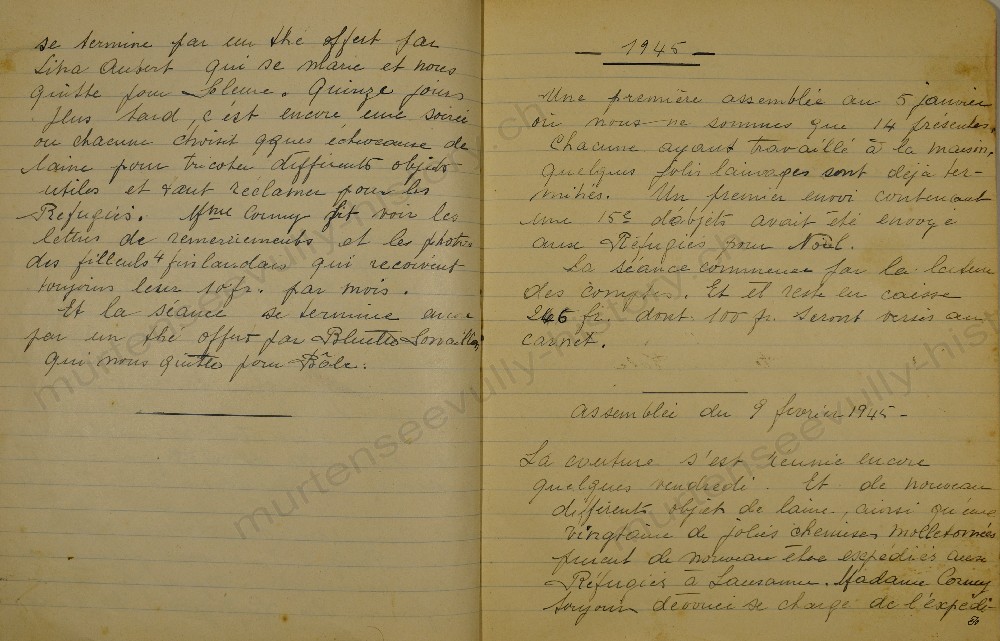 se termine par un thé offert par
Lina Aubert qui se marie et nous
quitte pour Soleure. Quinze jours
plus tard, c'est encore une soirée
ou chacune choisit qques échevaux de
laine pour tricoter différents objets
utiles et tant réclamer pour les
Réfugiés. Mme Cornuy fit voir les
lettres de remerciements et les photos
des filleuls finlandais qui reçoivent
toujours leur 10 fr. par mois.
Et la séance se termine
par un thé offert par Bluette
qui nous quitte pour Bôle.
1945
Une première assemblée au 5 janvier
où nous ne sommes que 14 présentes.
Chacune ayant travaillé à la maison,
quelques jolis lainages sont déjà ter-
minés. Un premier envoi contenant
une 15e d'objets avait été envoyé
aux Réfugiés pour Noël.
La séance commence par la lecture
des comptes. Et il reste en caisse
246 fr. dont 100 fr. seront versés au
carnet.
Assemblée du 9 février 1945 -
La couture s'est réunie encore
quelques vendredi. Et de nouveau
différents objet de laine, ainsi qu'une
vingtaine de jolies chemises molletonnées
purent de nouveau être expédiés aux
Réfugiés à Lausanne. Madame Cornuy
toujours dévouée se charge de l'expédi-
murtenseevully-history.ch
murtenseevully-history.ch
murtenseevully-history.ch